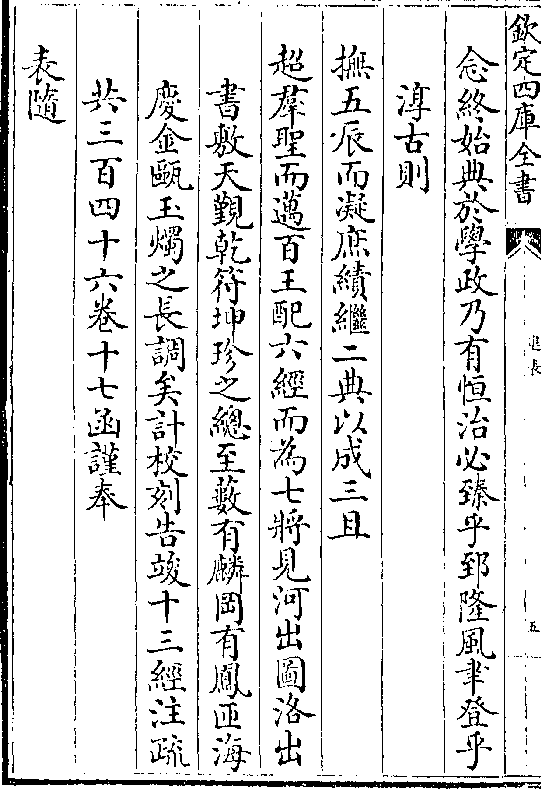 欽定四庫全書
進表
五
念終始典於學政乃有恒治必臻乎郅隆風聿登乎
淳古則
撫五辰而凝庶績繼二典以成三且
超羣聖而邁百王配六經而為七將見河出圖洛出
書敷天觀乾符坤珍之總至藪有麟岡有鳳匝海
慶金甌玉燭之長調矣計校刻告竣十三經注疏
共三百四十六卷十七函謹奉
表隨